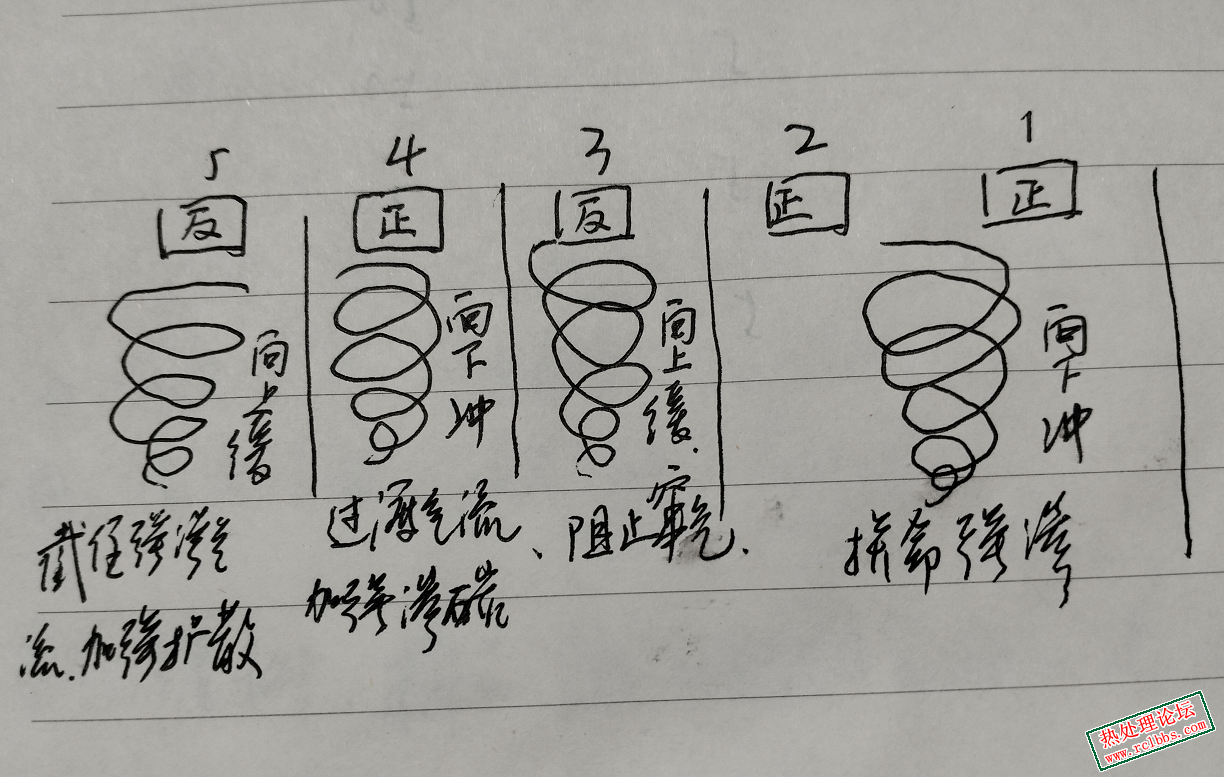 5 4 3 2 1
反 正 反 正 正
向上缓
向下冲
向上缓.
向下冲
截住强渗气
流.加强扩散
过滤气流、
加强渗碳
阻止窜气.
拼命强渗
热处理论坛
www.rclbbs.com